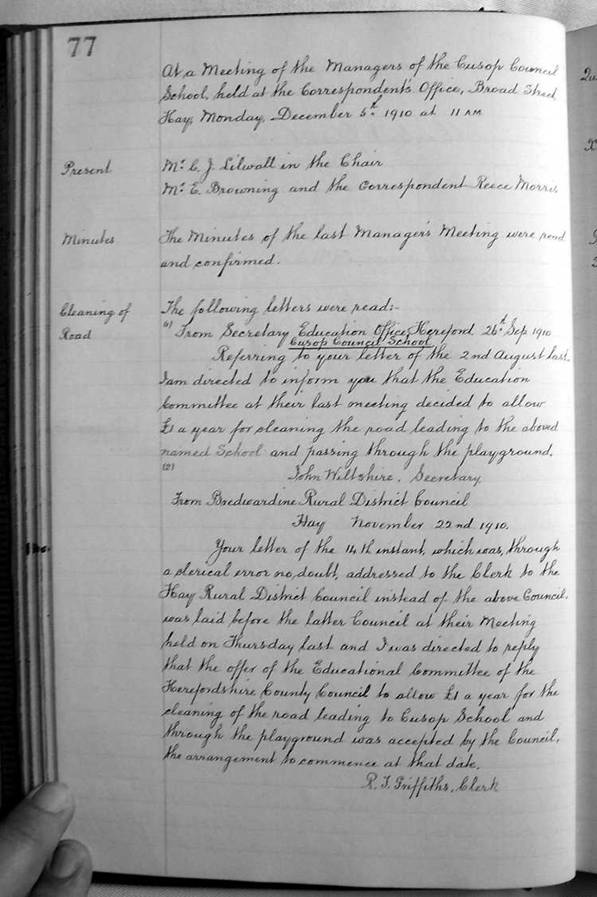 77
At a Meeting of the Managers of the Cusop Council
School, held at the Correspondent's Office, Broad Street,
Hay, Monday, December 5th 1910 at 11 AM
Present
Mr C. J. Lilwall in the Chair
Mr E. Browning and the Correspondent Reece Morris
Minutes
The Minutes of the last Manager's Meeting were read
and confirmed.
Cleaning of
Road
The following letters were read:-
(1) From Secretary Education Office, Hereford 26th Sep 1910
Cusop Council School
Referring to your letter of the 2nd August last.
I am directed to inform you that the Education
Committee at their last meeting decided to allow
£1 a year for cleaning the road leading to the above
named School and passing through the playground.
(2)
John Wiltshire. Secretary
From Bredwardine Rural District Council
Hay November 22nd 1910.
Your letter of the 14th instant, which was, through
a clerical error no, doubt, addressed to the Clerk to the
Hay Rural District Council instead of the above Council,
was laid before the latter Council at their Meeting
held on Thursday last and I was directed to reply
that the offer of the Educational Committee of the
Herefordshire County Council to allow £1 a year for the
cleaning of the road leading to Cusop School and
through the playground was accepted by the Council,
the arrangement to commence at that date.
R. T. Griffiths, Clerk